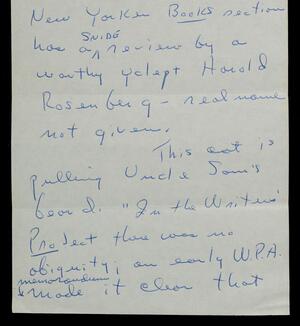 New Yorker Books section
has a SNIDE review by a
worthy yclept Harold
Rosenberg - real name
not given.
This cat is
pulling Uncle Sam's
beard. "In the Writers'
Project there was no
obiquity; an early W.P.A.
memorandum
made it clear that